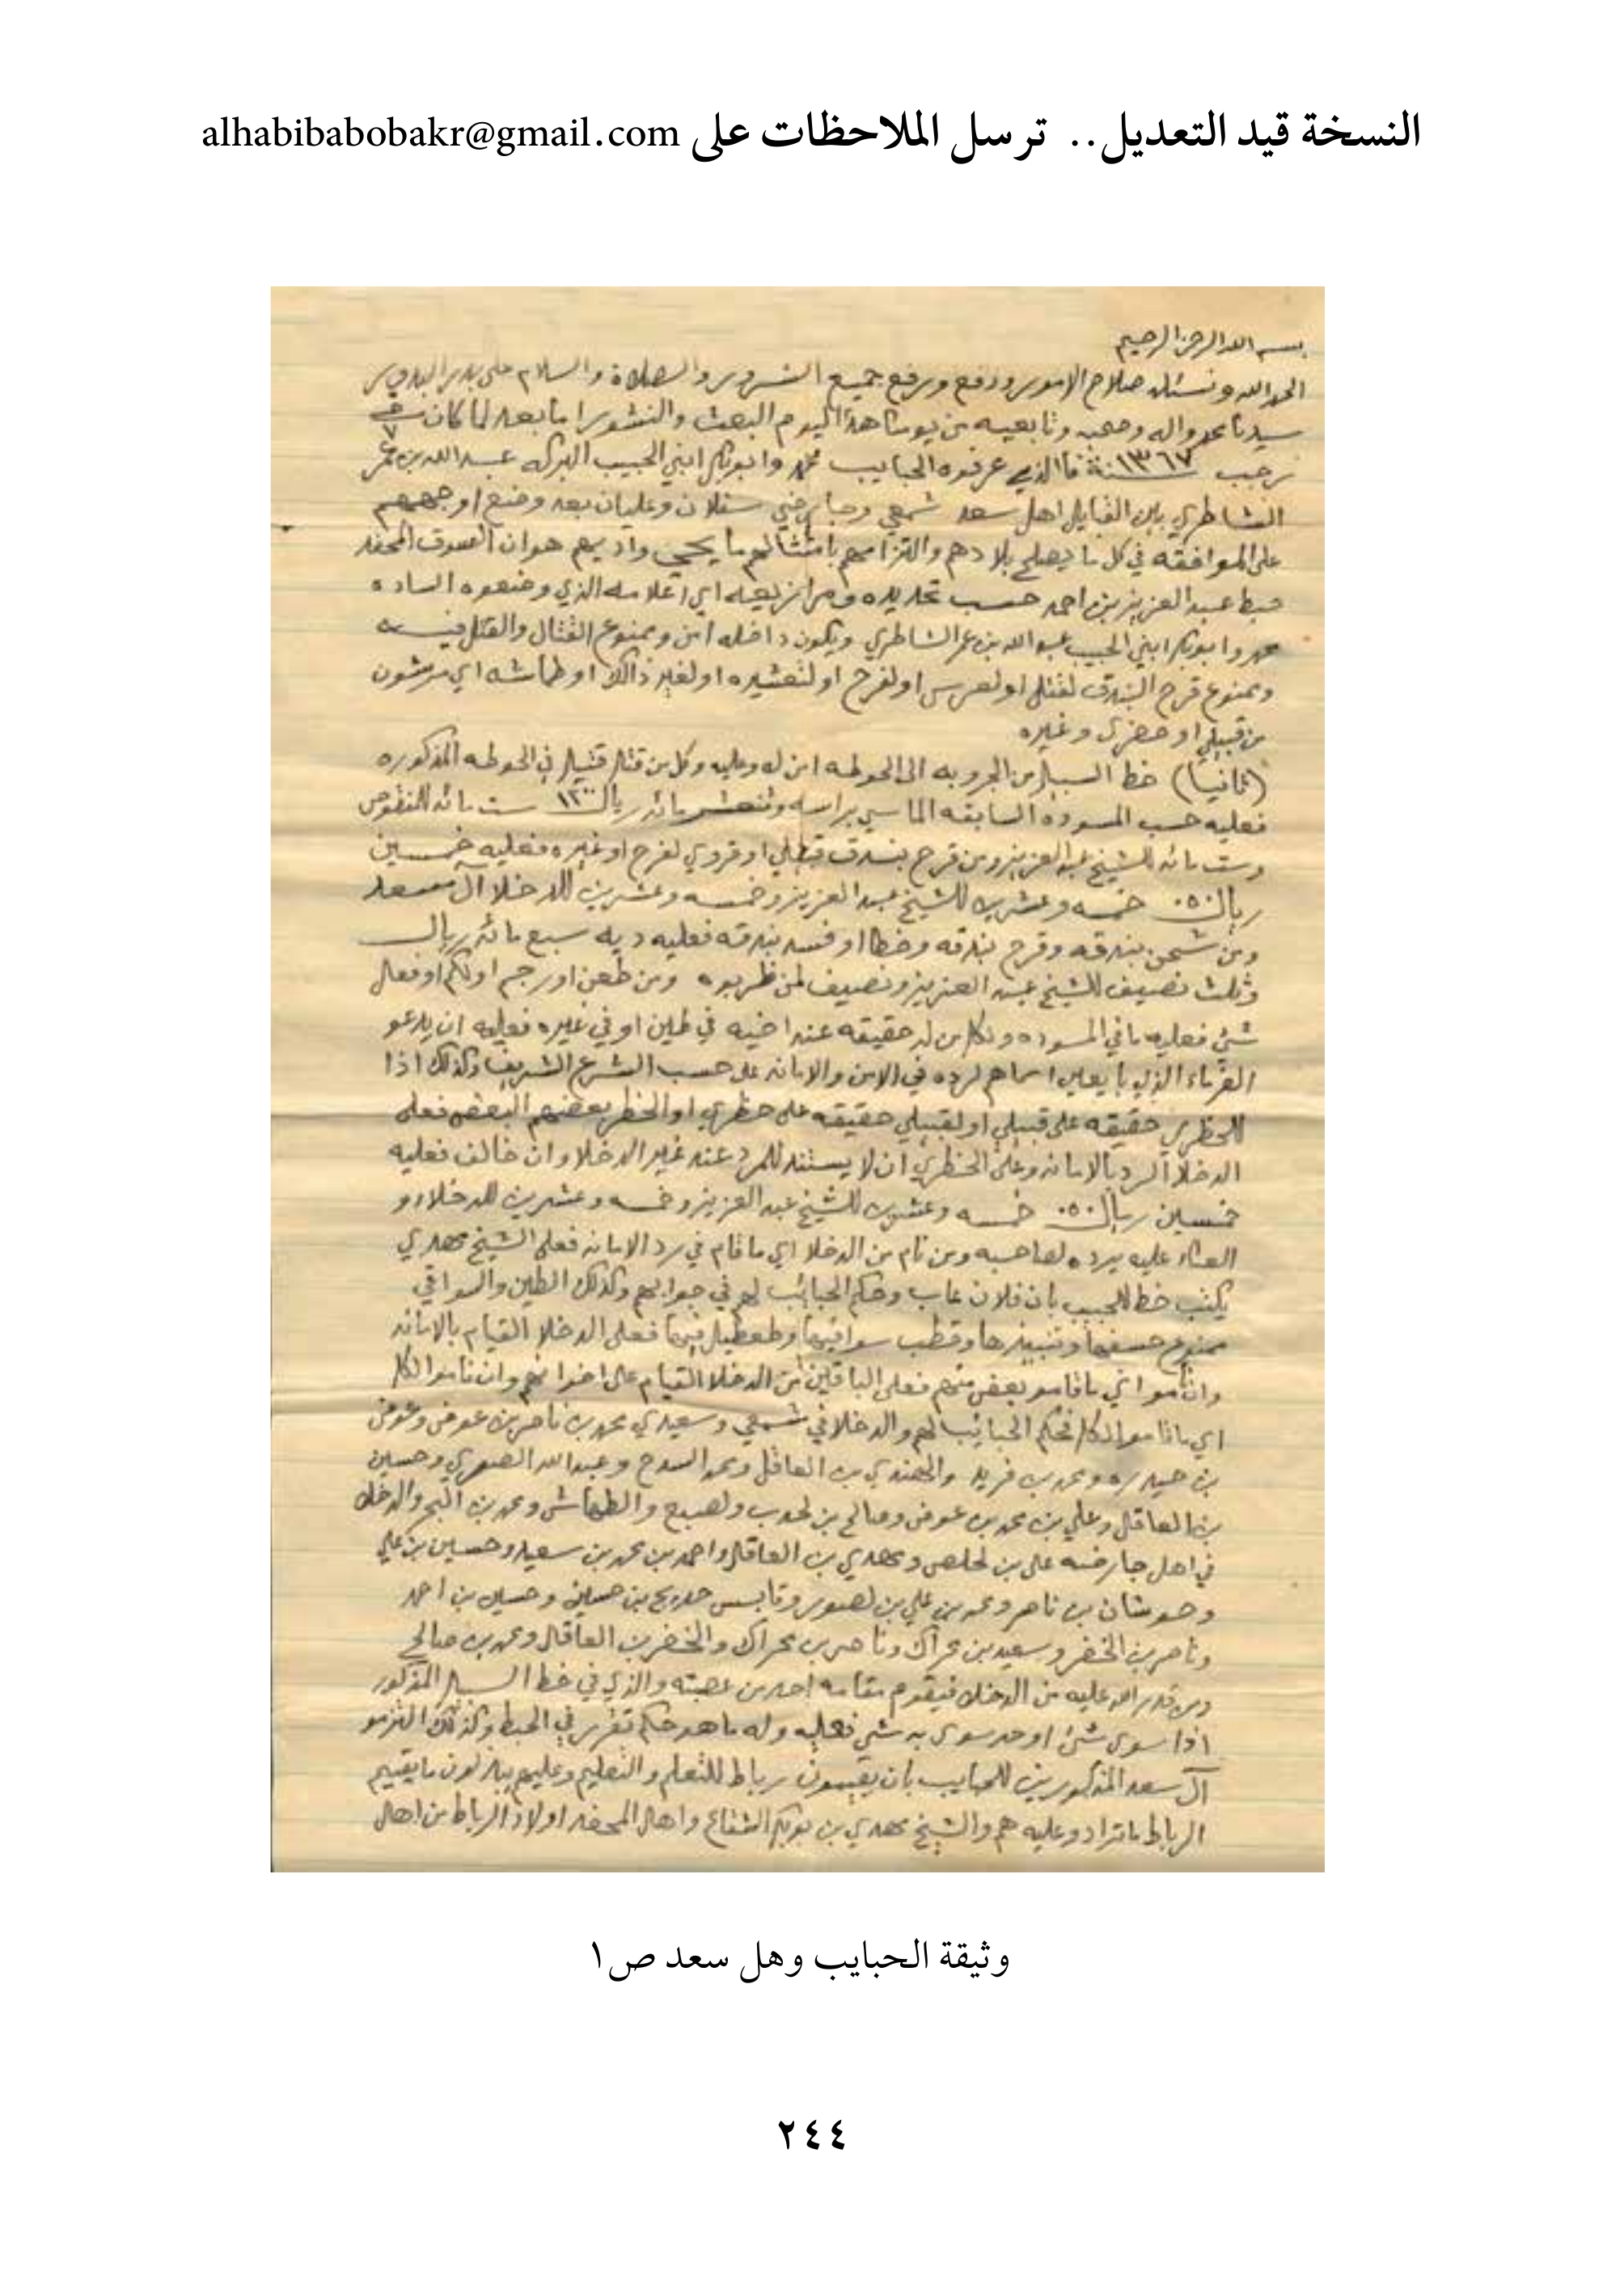 النسخة قيد التعديل.. ترسل الملاحظات على alhabibabobakr@gmail.com
بسم الله الرحمن الرحيم
الحمد لله ونسئله صلاح الامور ودفع ورفع جميع الشرور والصلاة والسلام على بدر البدور
سيدنا محمد واله وصحبه وتابعيه من يومنا هذا اليوم البعث والنشور اما بعد لما كان في ٧
رجب سنة ١٣٦٧ فالذي عرفوه الحبايب محمد وابوبكر ابني الحبيب البركه عبد الله بن عمر
الشاطري بين القبايل اهل سعد شمعي وعليان بعد وضع اوجههم
على الموافقه في كل ما يصلح بلادهم والتزامهم بامتثالهم ما يحيي واديهم هو ان السوق المحفد
حبط عبد العزيز بن احمد حسب تحديده اي اعلامه الذي وضعوه الساده
محمد وابوبكر ابني الحبيب عبد الله بن عمر الشاطري ويكون داخله امن وممنوع القتال والقتل فيه
وممنوع قرح البندق لقتل او لعرس او لفرح او لتعشيره او لغير ذالك او طماشه اي
من قبيلي او حضري وغيره
(ثانيا) خط السيار من الجروبه الى الحوطه امن له وعليه وكل من قتل قتيل في الحوطه المذكوره
فعليه حسب المسوده السابقه الماسي براسه مائه ريال ١٢٠٠ ست مائه للمنقوص
وست مائه للشيخ عبد العزيز ومن قرح بندق لفرح او غيره فعليه خمسين
ريال ٥٠ خمسه وعشرين للشيخ عبد العزيز وخمسه وعشرين للدخلا آل سعد
ومن شحن بندقه وقرح بندقه وخطا او فسد بندقه فعليه ديه سبع مائه ريال
وثلث نصيف للشيخ عبد العزيز ونصيف لمن ظربوه ومن طعن او رجم او لكم او فعال
شئ فعليه ما في المسوده وكل من له حقيقه عند اخيه في طين او في غيره فعليه ان يدعو
الغرماء الذي با يعلي اسماهم لرده في الامن والامانه على حسب الشرع الشريف وكذلك اذا
للحظري حقيقه على قبيلي او لقبيلي حقيقه على حظري او الحظر بعضهم البعض فعلى
الدخلا الرد بالامانه وعلى الحظري ان لا يستند للمرد عند غير الدخلا وان خالف فعليه
خمسين ريال ٥٠ خمسه وعشرين للشيخ عبد العزيز وخمسه وعشرين للدخلا و
عليه يرده لصاحبه ومن نام من الدخلا اي ما قام في رد الامانه فعلى الشيخ مهدي
يكتب خط للحبيب بان فلان عاب وحكم الحبائب لهم في جوابهم وكذلك الطين والسواقي
ممنوع حسفها وقطب سواقيها فعلى الدخلا القيام بالامانه
وان نامو اي ما قامو بعض منهم فعلى الباقين من الدخلا القيام على اخوانهم وان نامو الكل
اي ما قامو الكل فحكم الحبائب لهم والدخلا في شمعي وسعيدي محمد بن ناصر بن عوض وعوض
بن حيدره ومحمد بن فريد والمهندي بن العاقل ومحمد السدح وعبد الله الصوري وحسين
بن العاقل وعلي بن محمد بن عوض وصالح بن لحدب ولصبح والطماش ومحمد بن البحر والدخلا
في اهل على بن لخلص ومهدي بن العاقل واحمد بن محمد بن سعيد وحسين بن علي
وحوشان بن ناصر ومحمد بن علي بن لصور وحسين بن احمد
وناصر بن الخضر وسعيد بن محراك وناصر بن محراك والخضر بن العاقل ومحمد بن صالح
ومن قدر الله عليه من الدخلا فيقوم مقامه احد من عصبته والذي في خط السيار المذكور
اذا سوى شئ او حد سوى به شي فعليه وله ما هو حكم تقرر في الحبط وكذلك التزمو
آل سعد المذكورين للحبايب بان يقيمون رباط للتعلم والتعليم وعليهم يبذلون ما يقيم
الرباط وعليه هم والشيخ مهدي بن بوبكر الشقاع واهل المحفد اولاد الرباط من اهل
وثيقة الحبايب وهل سعد ص١
٢٤٤